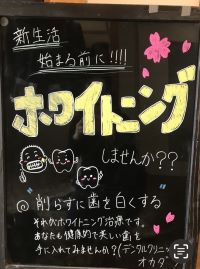 新生活
始まる前に!!!!
ホワイトニング
しませんか??
◎ 削らずに歯を白くする
それがホワイトニング治療です。
あなたも健康的で美しい歯を
手に入れてみませんか?(デンタルクリニック
オカダ